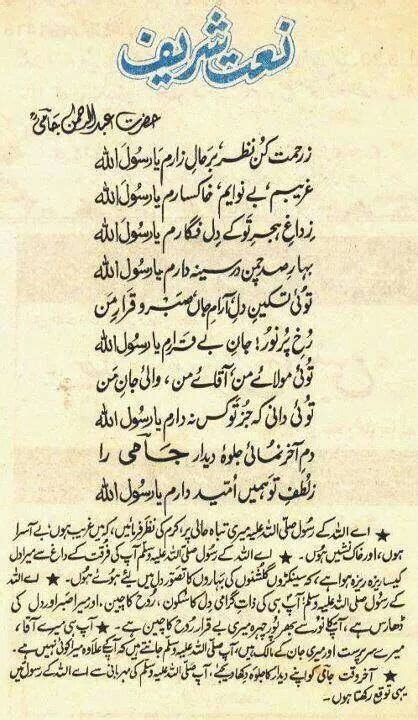 نعت شریف
حضرت عبدالرحمٰن جامیؒ
ز رحمت کن نظر بر حالِ زارم یا رسول اللہ
غریبم، بے نوایم، خاکسارم یا رسول اللہ
ز داغِ ہجرِ تو کے دل فگارم یا رسول اللہ
بہارِ صد چمن در سینہ دارم یا رسول اللہ
توئی تسکینِ دل، آرامِ جاں، صبر و قرارِ من
رُخِ پُرنور! جانِ بے قرارم یا رسول اللہ
توئی مولائے من، آقائے من، والیِ جانِ من
توئی دانی کہ جز تو کس نہ دارم یا رسول اللہ
دمِ آخر نمائی جلوۂ دیدار جامی را
ز لطفِ تو ہمیں اُمید دارم یا رسول اللہ
★ اے اللہ کے رسول صلی اللہ علیہ وسلم میری تباہ حالی پر، کرم کی نظر فرمائیں، کہ میں غریب ہوں، بے آسرا
ہوں، اور خاک نشیں ہوں۔ ★ اے اللہ کے رسول صلی اللہ علیہ وسلم آپ کی فرقت کے داغ سے میرا دل
کیسا ریزہ ریزہ ہوا ہے، کہ سینکڑوں گلشنوں کی بہاروں کا تصور دل میں لیے ہوئے ہوں۔ ★ اے اللہ
کے رسول صلی اللہ علیہ وسلم! آپ ہی کی ذات گرامی دل کا سکون، روح کا چین۔ اور میرا صبر اور دل کی
ڈھارس ہے، آپ کا نور سے بھرپور چہرہ میری بے قرار روح کا چین ہے۔ ★ آپ ہی میرے آقا،
میرے سرپرست اور میری جان کے مالک ہیں، آپ صلی اللہ علیہ وسلم جانتے ہیں کہ آپکے علاوہ میرا کوئی نہیں ہے۔
★ آخر وقت جامی کو اپنے دیدار کا جلوہ دکھا دیجئے، آپ صلی اللہ علیہ وسلم کی مہربانی سے اے اللہ کے رسول میں
یہی توقع رکھتا ہوں۔